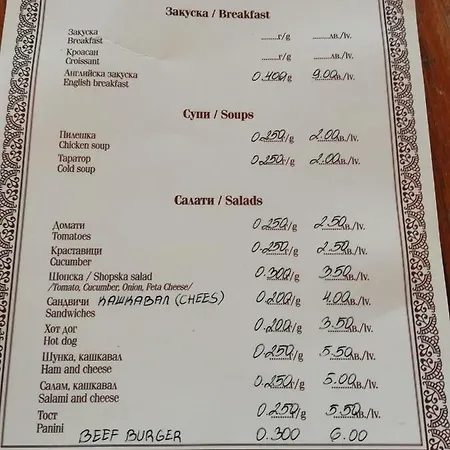 Закуска / Breakfast
Закуска ........г/g ........лв./lv.
Breakfast
Кроасан ........г/g ........лв./lv.
Croissant
Английска закуска 0.400г/g 9.00лв./lv.
English breakfast
Супи / Soups
Пилешка 0.250г/g 2.00лв./lv.
Chicken soup
Таратор 0.250г/g 2.00лв./lv.
Cold soup
Салати / Salads
Домати 0.250г/g 2.50лв./lv.
Tomatoes
Краставици 0.250г/g 2.50лв./lv.
Cucumber
Шопска / Shopska salad 0.300г/g 3.50лв./lv.
/Tomato, Cucumber, Onion, Feta Cheese/
Сандвичи КАШКАВАЛ (CHEES) 0.200г/g 4.00лв./lv.
Sandwiches
Хот дог 0.200г/g 3.50лв./lv.
Hot dog
Шунка, кашкавал 0.250г/g 5.50лв./lv.
Ham and cheese
Салам, кашкавал 0.250г/g 5.00лв./lv.
Salami and cheese
Тост 0.250г/g 5.50лв./lv.
Panini
BEEF BURGER 0.300 6.00